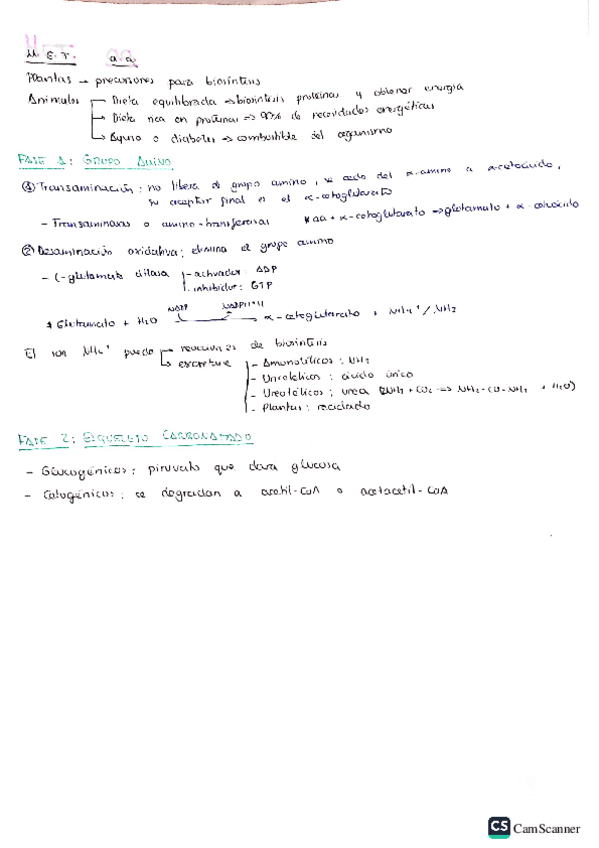 MET. aa
Plantas → precursores para biosíntesis
Animales → Dieta equilibrada → biosíntesis proteínas y obtener energía
→ Dieta rica en proteínas → 90% de necesidades energéticas
→ Ayuno o diabetes → combustible del organismo
FASE 1: GRUPO AMINO
① Transaminación: no libera el grupo amino, se cede del α-amino a α-cetoácido,
su aceptor final es el α-cetoglutarato
- Transaminasas o amino-transferasas * aa + α-cetoglutarato → glutamato + α-cetoácido
② Desaminación oxidativa: elimina el grupo amino
- L-glutamato - activador: ADP
- inhibidor: GTP
* Glutamato + H2O → α-cetoglutarato + NH4+ / NH3
El ion NH4+ puede → de biosíntesis
→ excretarse - Amonotélicos: NH3
- Uricotélicos: ácido úrico
- Ureotélicos: urea (2NH3 + CO2 → NH2-CO-NH2 + H2O)
- Plantas: reciclado
FASE 2: ESQUELETO CARBONADO
- Glucogénicos: piruvato que dará glucosa
- Cetogénicos: se degradan a acetil-CoA o acetacetil-CoA
CS CamScanner